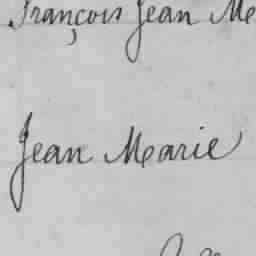 François Jean Me
Jean Marie